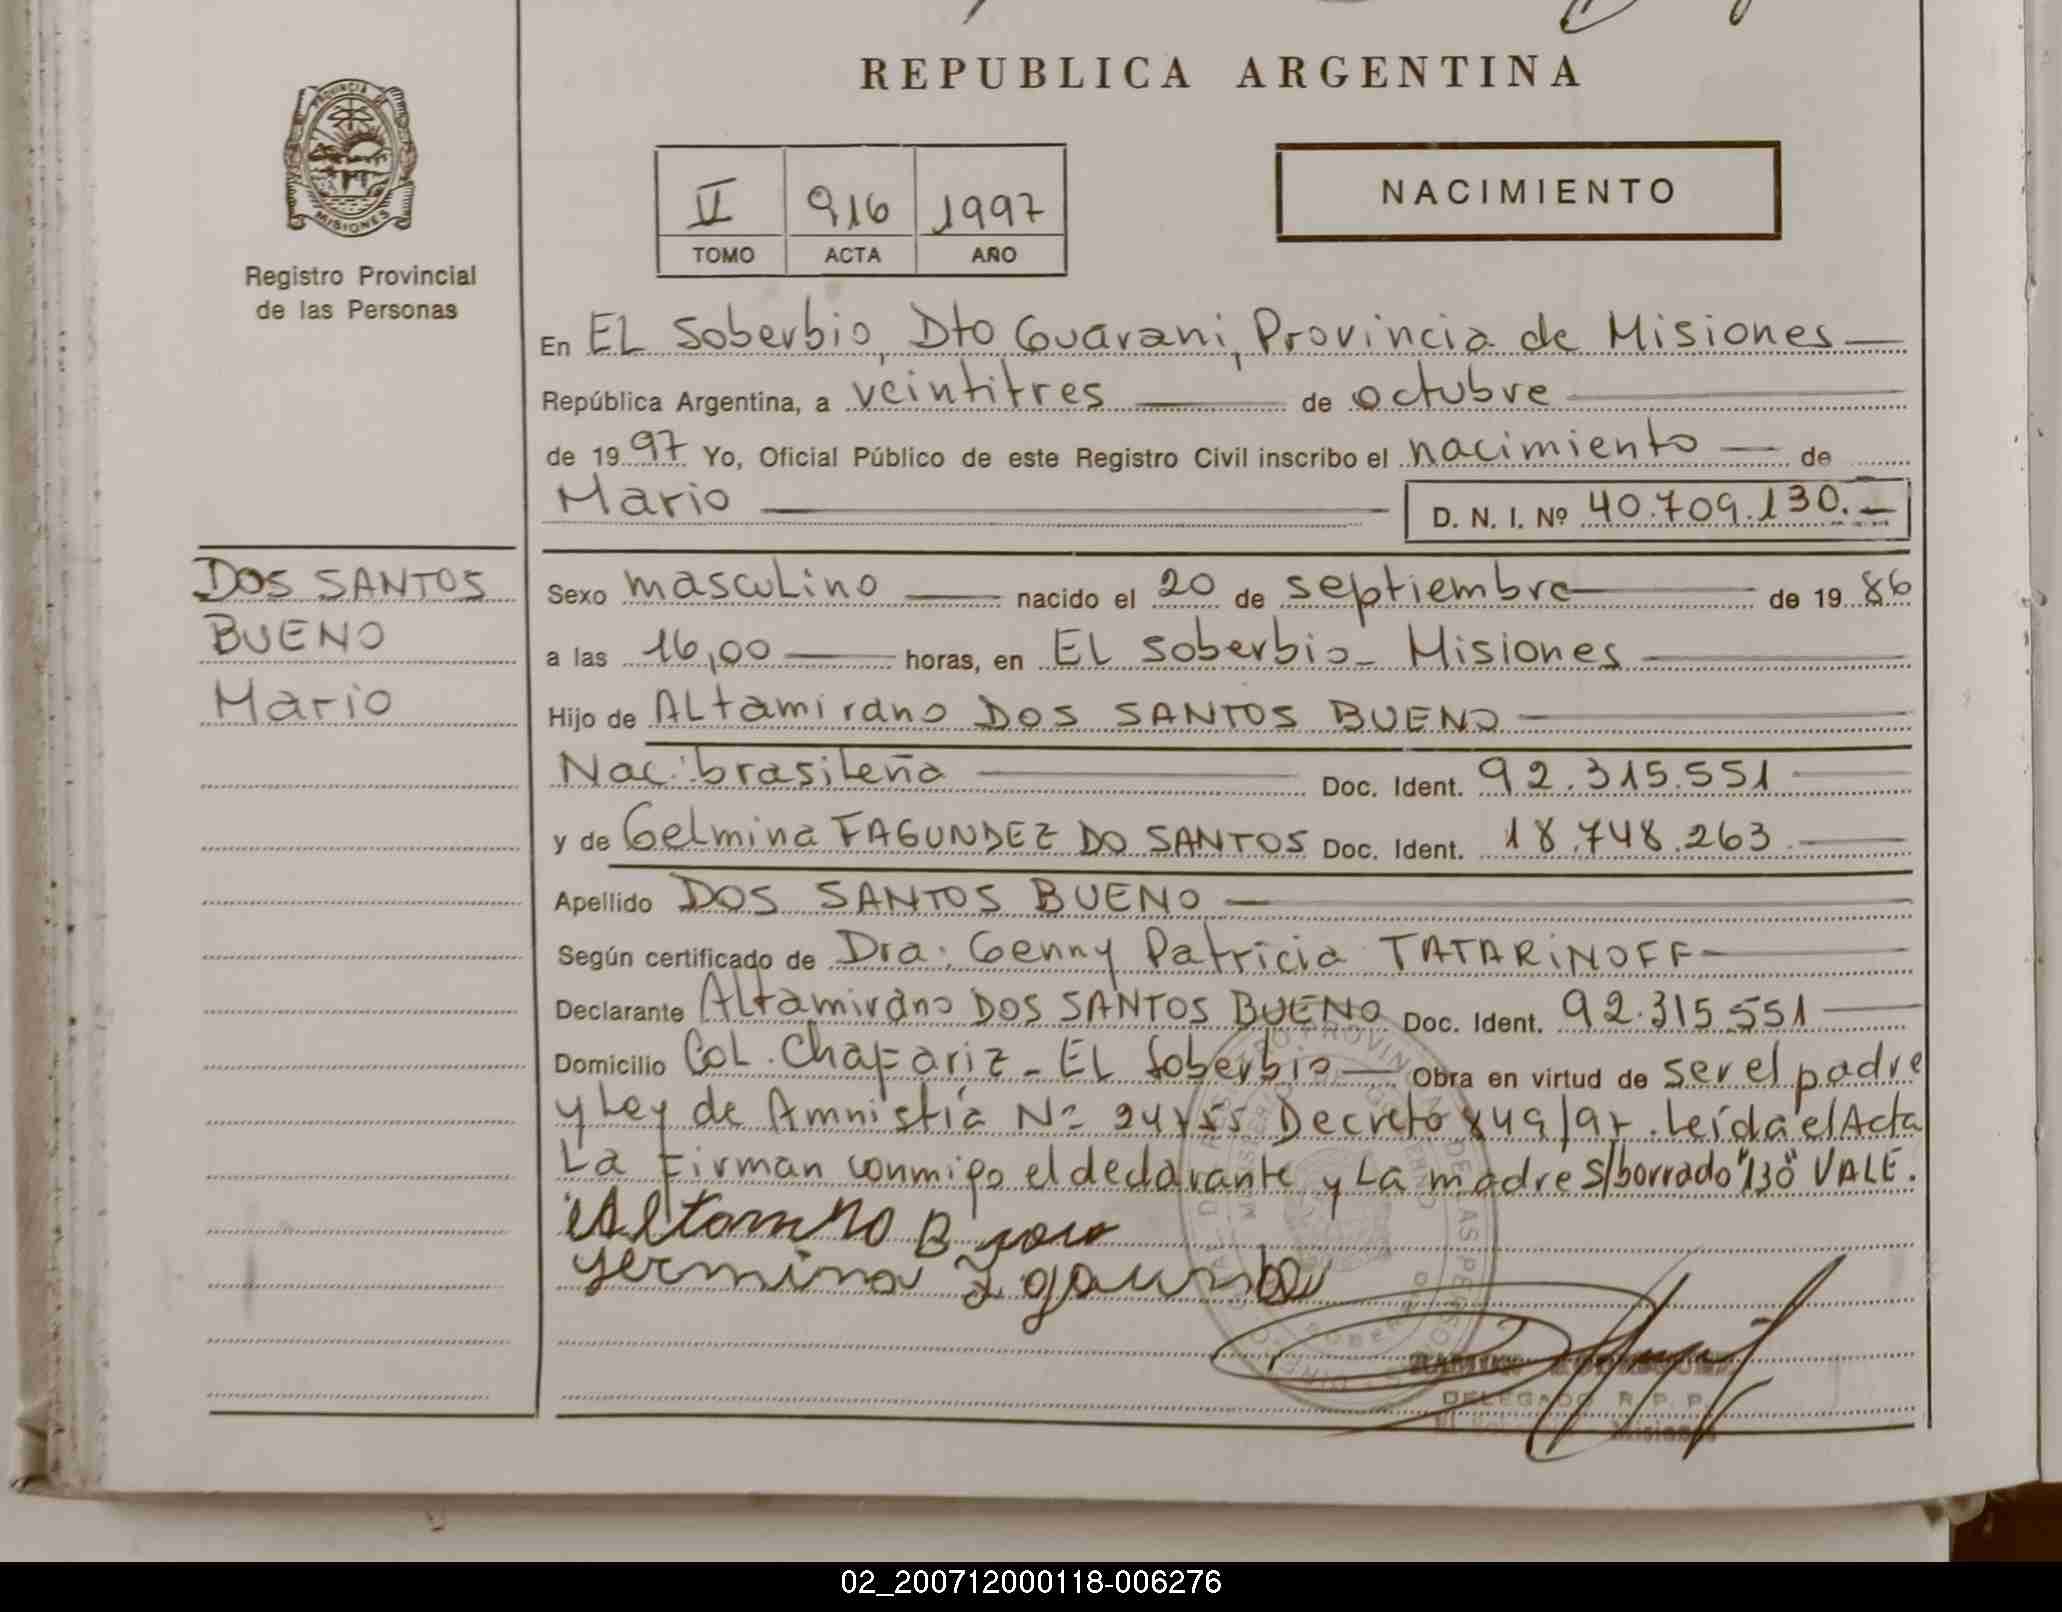 REPUBLICA ARGENTINA
PROVINCIA DE
MISIONES
Registro Provincial
de las Personas
II 916 1997
TOMO ACTA AÑO
NACIMIENTO
En EL Soberbio, Dto Guarani, Provincia de Misiones
República Argentina, a veintitres de octubre
de 1997 Yo, Oficial Público de este Registro Civil inscribo el nacimiento de
Mario D. N. I. Nº 40.709.130.
DOS SANTOS
BUENO
Mario
Sexo masculino nacido el 20 de septiembre de 1986
a las 16,00 horas, en EL Soberbio - Misiones
Hijo de ALtamirano DOS SANTOS BUENO
Nac: brasileña Doc. Ident. 92.315.551
y de Gelmina FAGUNDEZ DO SANTOS Doc. Ident. 18.748.263
Apellido DOS SANTOS BUENO
Según certificado de Dra. Genny Patricia TATARiNOFF
Declarante ALtamirano DOS SANTOS BUENO Doc. Ident. 92.315.551
Domicilio CoL. Chafariz - EL Soberbio Obra en virtud de ser el padre
y Ley de Amnistía Nº 24755 Decreto 849/97. Leída el Acta
La Firman conmigo el declarante y La madre S/borrado "130" VALE.
DELEGADO R. P. P.
Misiones
02_200712000118-006276